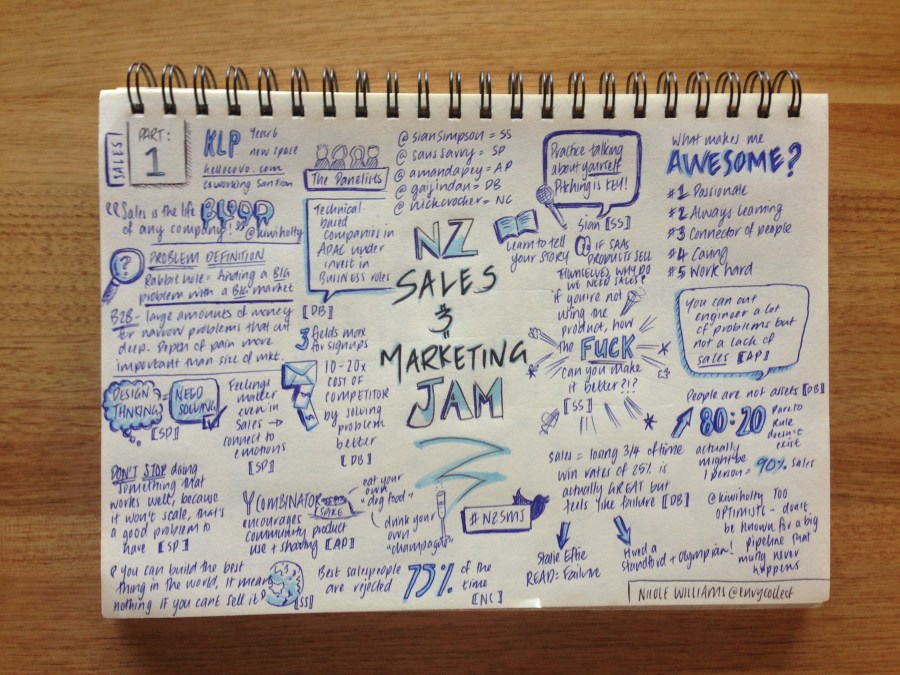 SALES
PART:
1
KLP Years
new space
hellocovo.com
coworking San Fran
"Sales is the life BLOOD
of any company!" @kiwiholty
? PROBLEM DEFINITION
Rabbit hole = finding a BIG
problem with a BIG market
B2B - large amounts of money
for narrow problems that cut
deep. Depth of pain more
important than size of mkt.
DESIGN
THINKING
=
NEED
SOLVING
[SP]
Feelings
matter
even in
Sales →
connect to
emotions
[SP]
DON'T STOP doing
something that
works well, because
it won't scale, that's
a good problem to
have [SP]
you can build the best
thing in the world, it means
nothing if you cant sell it
[SS]
The Panelists
@siansimpson = SS
@sanssavvy = SP
@amandapey = AP
@gaijindan = DB
@nickcrocker = NC
Technical
based
companies in
APAC under
invest in
Business roles
[DB]
3 fields max
for signups
10-20x
cost of
competitor
by solving
problem
better
[DB]
NZ
SALES
&
MARKETING
JAM
Y COMBINATOR
encourages
community product
use + sharing [AP]
SAKE
eat your
own
"dog food"
drink your
own
"champagne"
#NZSMJ
Best salespeople
are rejected 75% of the
time
[NC]
Practice talking
about yourself
Pitching is KEY!
Sian [SS]
learn to tell
your STORY
Q IF SAAS
PRODUCTS SELL
THEMSELVES, WHY DO
WE NEED SALES?
if you're not
using the
product, how
the FUCK
can you make
it better?!?
[SS]
sales = losing 3/4 of time
win rates of 25% is
actually GREAT but
feels like failure [DB]
READ: Failure
Hired a
Standford + Olympian!
What makes me
AWESOME?
#1 Passionate
#2 Always learning
#3 Connector of people
#4 Caring
#5 Work hard
You can out
engineer a lot
of problems but
not a lack of
sales [AP]
People are not assets [DB]
80:20 Pareto
Rule
doesn't
exist
actually
might be
1 person = 90% sales
@kiwiholty TOO
OPTIMISTIC - don't
be known for a big
pipeline that
may never
happens
NICOLE WILLIAMS @envycollect